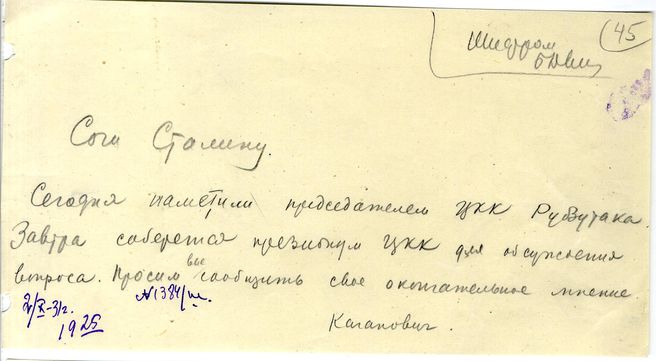 45
Шифром
Сочи Сталину.
Сегодня наметили председателем ЦКК Рудзутака.
Завтра соберется президиум ЦКК для обсуждения
вопроса. Просим вас сообщить свое окончательное мнение.
2/X-31г. N1384/ш.
1925
Каганович.